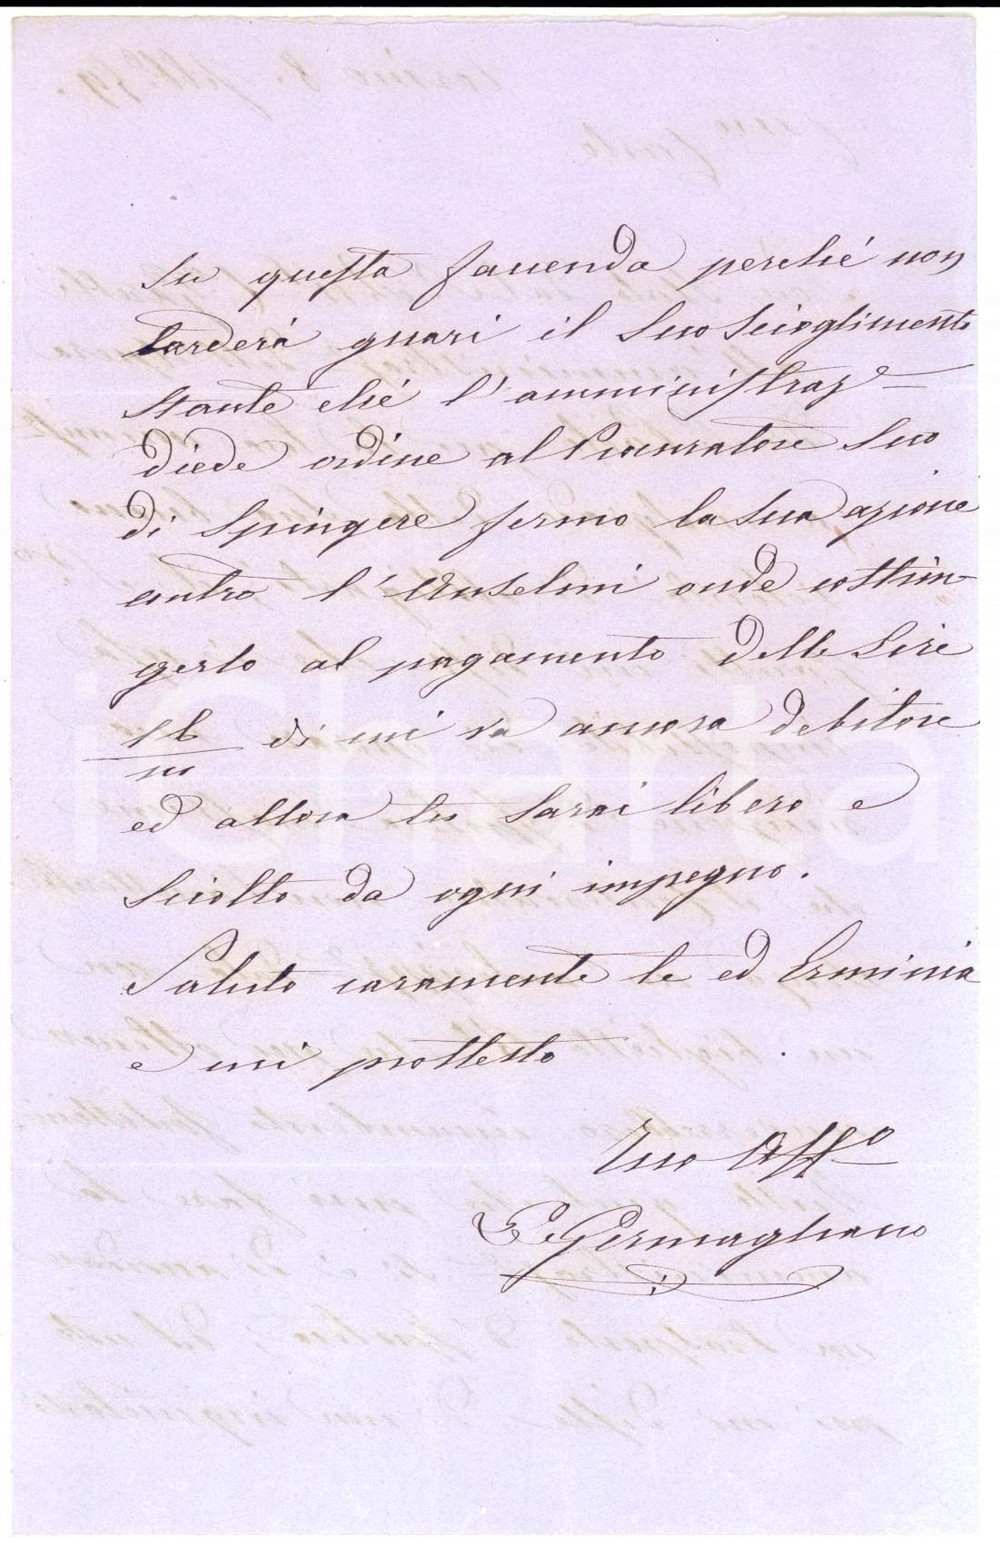 su questa faccenda perché non
tarderà guari il suo scioglimento
stante ché l'amministraz.e
diede ordine al Procuratore suo
di spingere fermo la sua azione
contro l'Anselmi onde costrin-
gerlo al pagamento delle Lire
16/m di cui va ancora debitore
ed allora tu sarai libero e
sciolto da ogni impegno.
Saluto caramente te ed Erminia
e mi protesto
Tuo Aff.o
Germagliano
iCharta